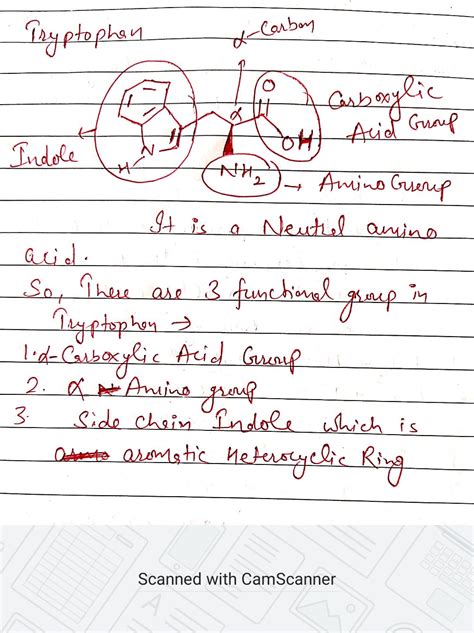 Tryptophan
α-Carbon
O
α
OH
Carboxylic
Acid Group
Indole
N
H
NH2
→ Amino Group
It is a Neutral amino
acid.
So, There are 3 functional group in
Tryptophan →
1. α-Carboxylic Acid Group
2. α Amino group
3. Side chain Indole which is
aromatic Heterocyclic Ring
Scanned with CamScanner